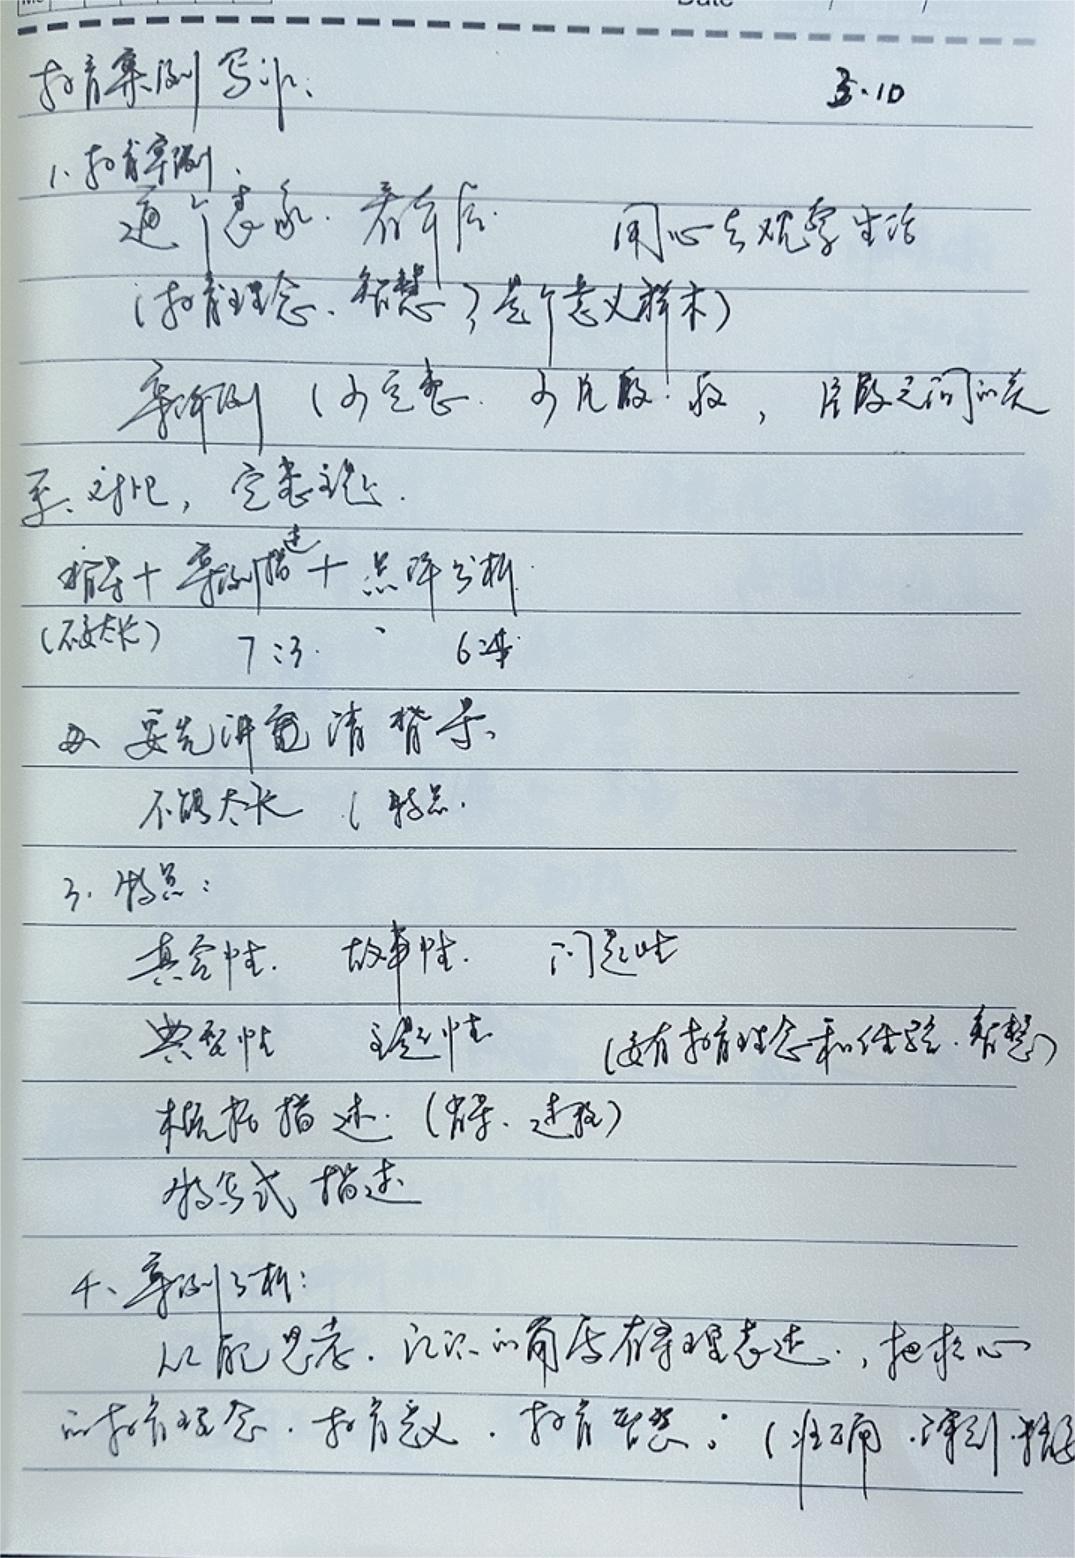 Date / /
教育案例写作: 3.10
1. 教育案例.
通个表象. 看本质. 用心去观学生活
(教育理念. 智慧, 是个意义样本)
案例 (可完整. 可片段. 段, 片段之间的关
系. 对比, 完整主题.
背景 + 案例描述 + 点评分析.
(不要太长) 7:3. 6:4
要先讲清背景.
不能太长 (特点.
3. 特点:
真实性. 故事性. 问题性
典型性 主题性 (要有教育理念和经验. 智慧)
概括描述. (背景. 过程)
特写式描述
4. 案例分析:
从思考. 认识的角度有条理表述., 把核心
的教育理念. 教育意义. 教育智慧; (准确. 深刻.